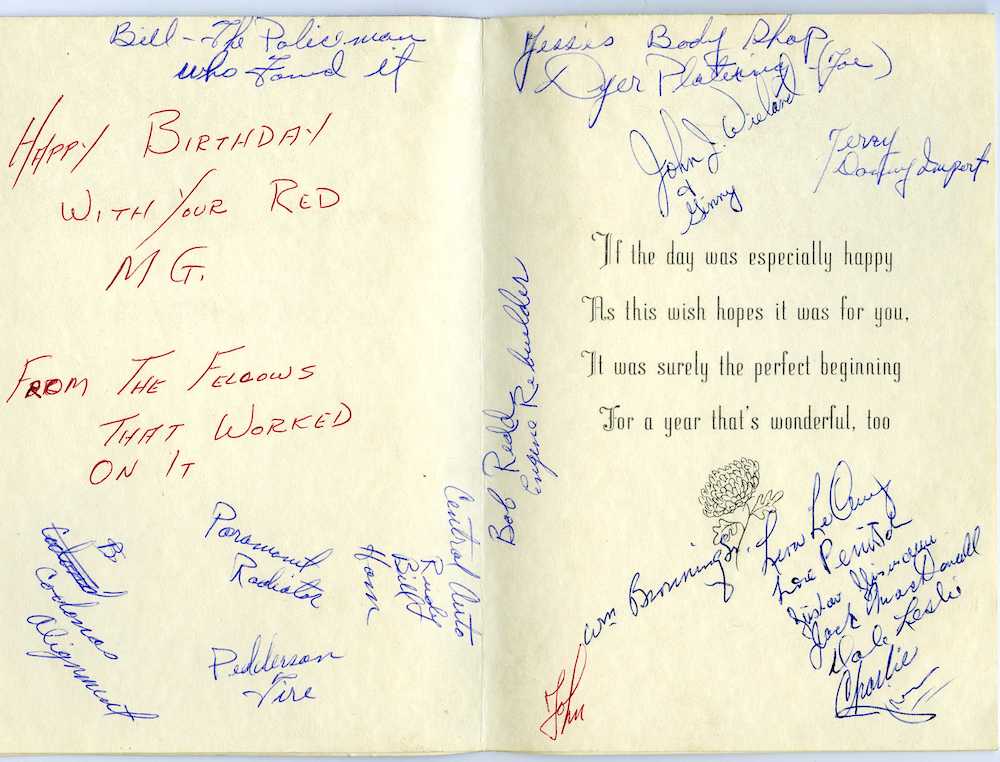 Bill - The Policeman
who Found it
HAPPY BIRTHDAY
WITH YOUR RED
MG.
FROM THE FELLOWS
THAT WORKED
ON IT
B
Codonas
Alignment
Paramount
Radiator
Pedderson
Tire
Central Auto
Rudy
Bill
Hom
Jess's Body Shop
Dyer Plating (Joe)
John J. Wieland
&
Ginny
Terry
Import
If the day was especially happy
As this wish hopes it was for you,
It was surely the perfect beginning
For a year that's wonderful, too
Bob Redd
Engine Rebuilder
Wm Browning Jr.
Gustav
Jack MacDonald
Dale Leslie
Charlie
John